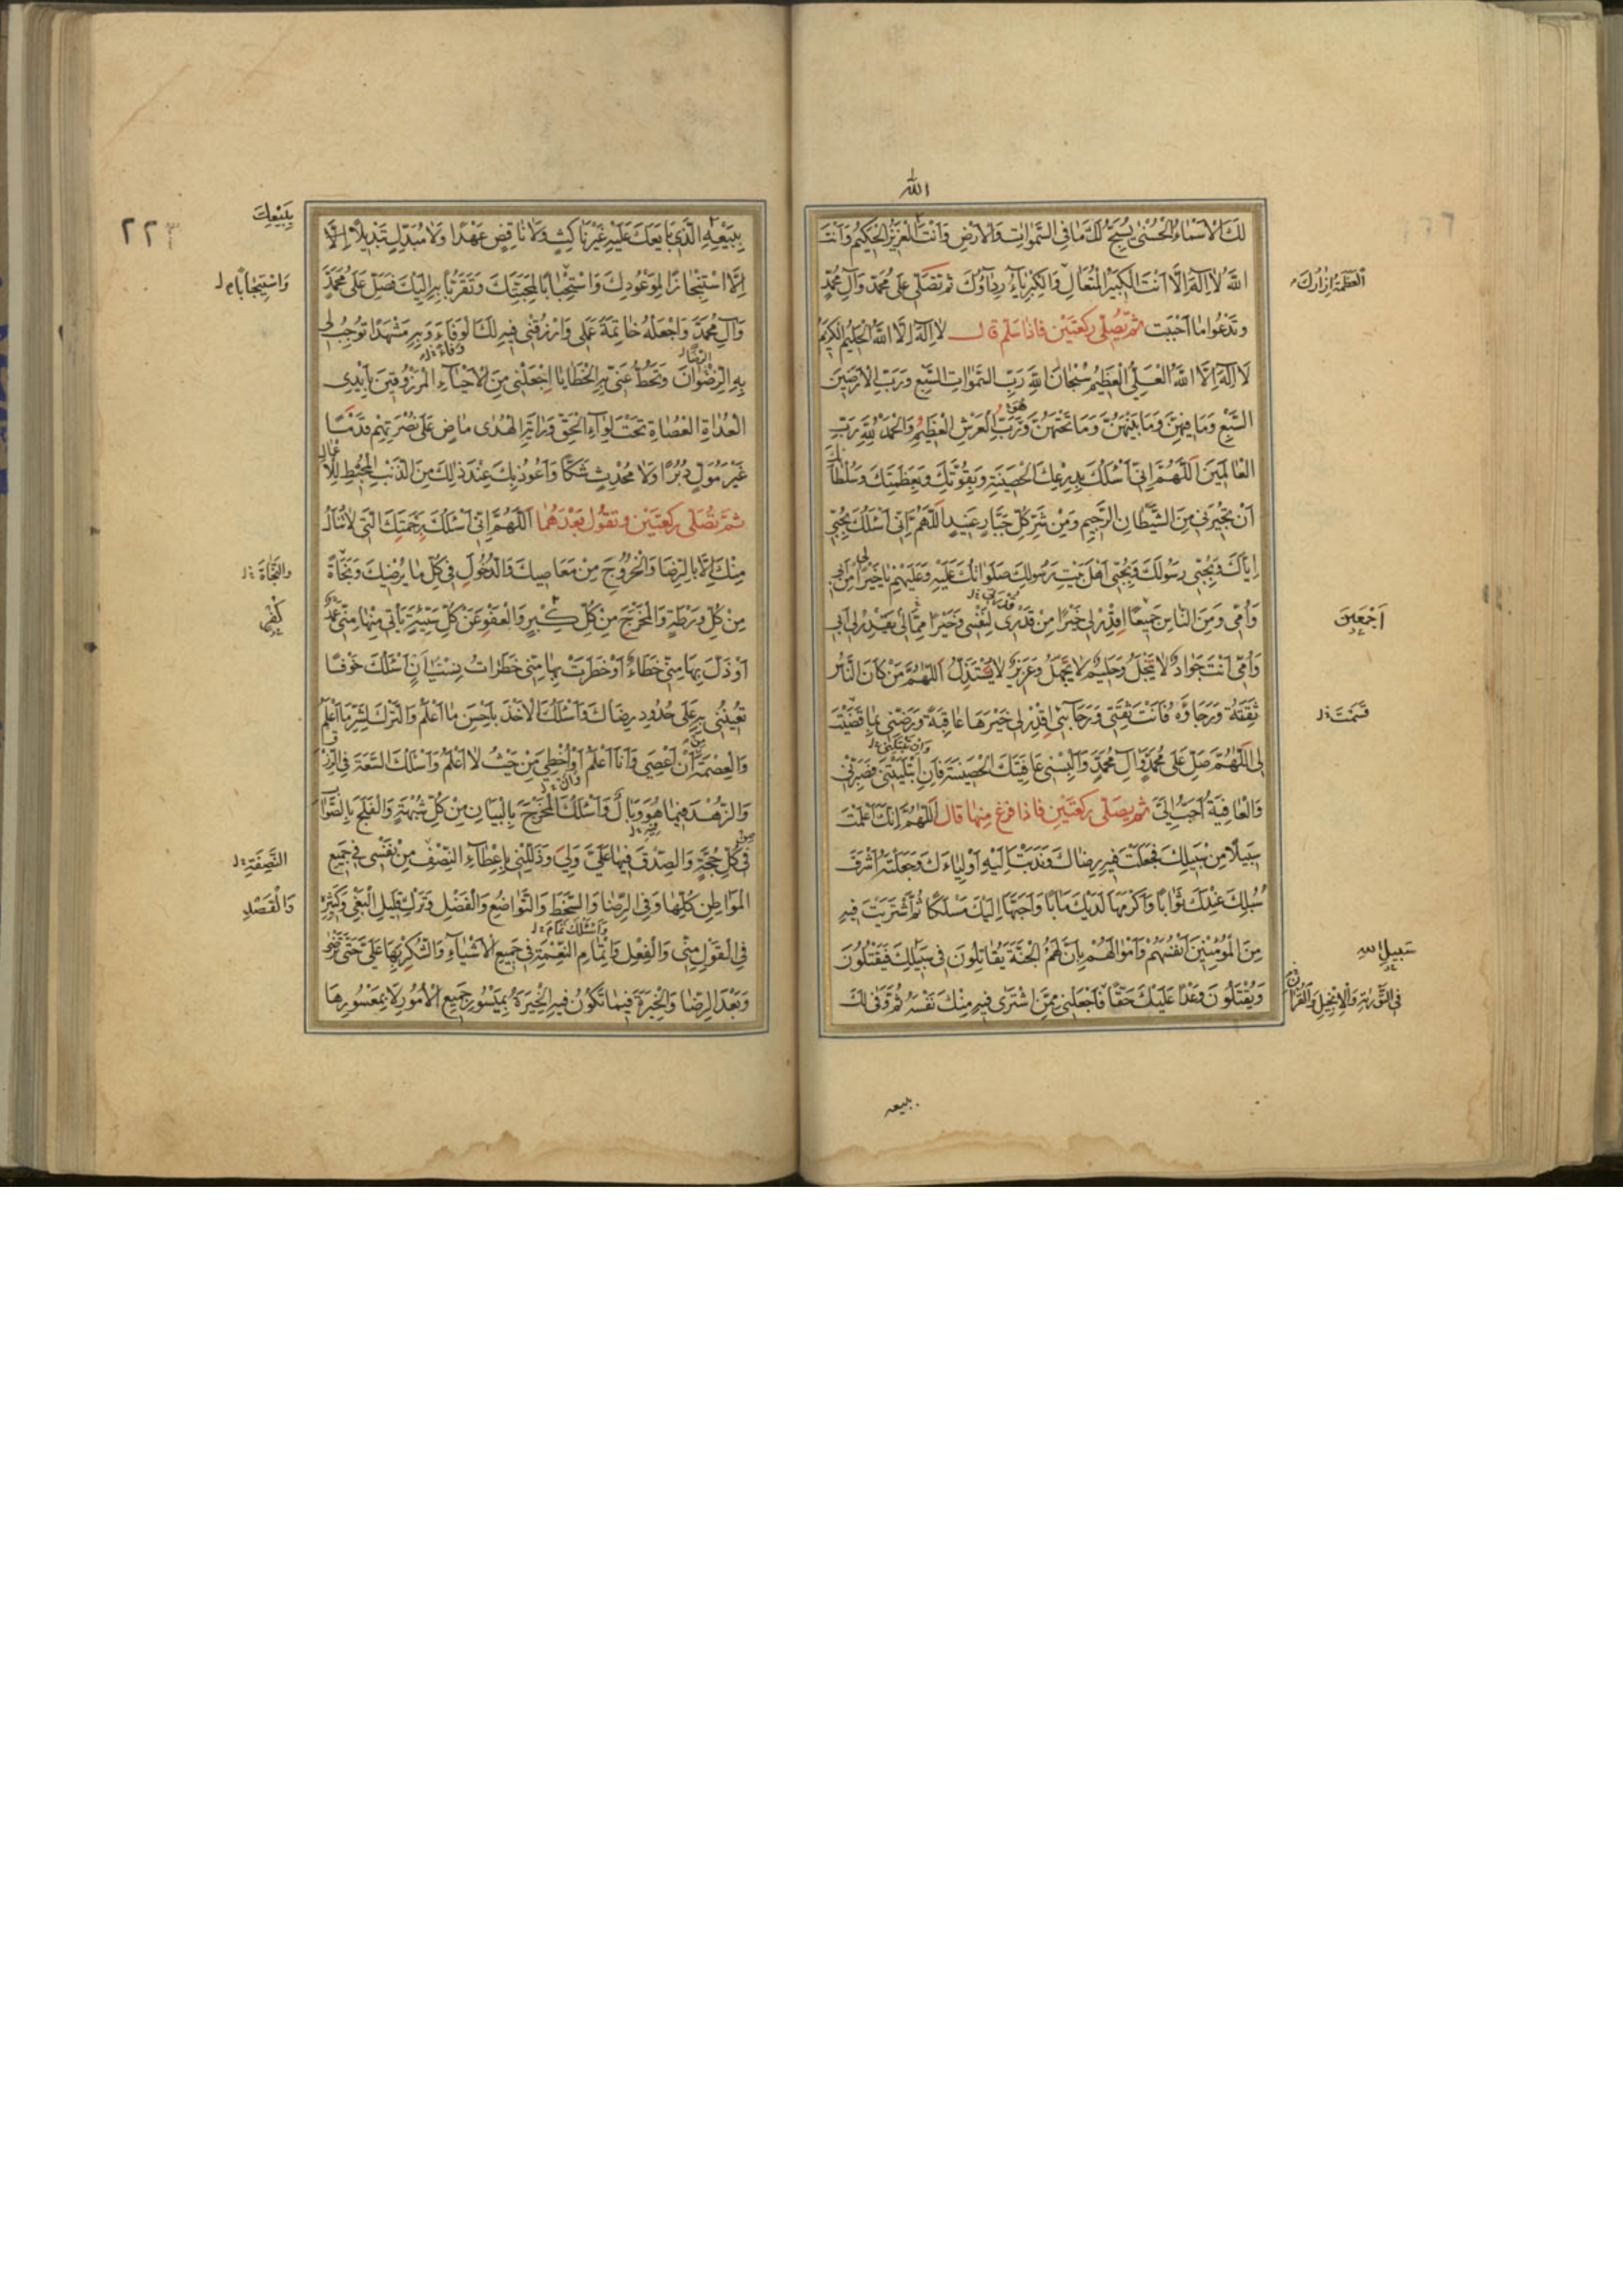 الله
لَكَ الْاَسْمَاءُ الْحُسْنٰى يُسَبِّحُ لَكَ مَا فِى السَّمٰوَاتِ وَالْاَرْضِ وَاَنْتَ الْعَزِيزُ الْحَكِيمُ وَاَنْتَ
اللّٰهُ لَا اِلٰهَ اِلَّا اَنْتَ الْكَبِيرُ الْمُتَعَالِ وَالْكِبْرِيَآءُ رِدَآؤُكَ ثم تُصَلّى عَلى مُحَمَّدٍ وَآلِ مُحَمَّدٍ
الْعَظَمَةُ اِزَارُكَ
وَتَدْعُوا مَا اَحْبَبْتَ ثُمَّ يُصَلّى رَكْعَتَيْنِ فَاِذَا سَلَّمَ قال لَا اِلٰهَ اِلَّا اللّٰهُ الْحَلِيمُ الْكَرِيمُ
لَا اِلٰهَ اِلَّا اللّٰهُ الْعَلِىُّ الْعَظِيمُ سُبْحَانَ اللّٰهِ رَبِّ السَّمٰوَاتِ السَّبْعِ وَرَبِّ الْاَرَضِينَ
السَّبْعِ وَمَا فِيهِنَّ وَمَا بَيْنَهُنَّ وَمَا تَحْتَهُنَّ وَرَبِّ الْعَرْشِ الْعَظِيمِ وَالْحَمْدُ لِلّٰهِ رَبِّ
الْعَالَمِينَ اَللّٰهُمَّ اِنّى اَسْئَلُكَ بِدِرْعِكَ الْحَصِينَةِ وَبِقُوَّتِكَ وَبِعَظَمَتِكَ وَسُلْطَانِكَ
اَنْ تُجِيرَنى مِنَ الشَّيْطَانِ الرَّجِيمِ وَمِنْ شَرِّ كُلِّ جَبَّارٍ عَنِيدٍ اَللّٰهُمَّ اِنّى اَسْئَلُكَ بِحُبّى
اِيَّاكَ وَبِحُبّى رَسُولَكَ وَبِحُبّى اَهْلَ بَيْتِ رَسُولِكَ صَلَوَاتُكَ عَلَيْهِ وَعَلَيْهِمْ يَا خَيْرًا لى مِنْ اَبى
وَاُمّى وَمِنَ النَّاسِ جَمِيعًا اقْدِرْ لى خَيْرًا مِنْ قَدْرى لِنَفْسى وَخَيْرًا مِمَّا يَقْدِرُ لى اَبى
اَجْمَعِينَ
وَاُمّى اَنْتَ جَوَادٌ لَا يَبْخَلُ وَحَلِيمٌ لَا يَجْهَلُ وَعَزِيزٌ لَا يُسْتَذَلُّ اَللّٰهُمَّ مَنْ كَانَ النَّاسُ
ثِقَتَهُ وَرَجَاؤَهُ فَاَنْتَ ثِقَتى وَرَجَآئى اقْدِرْ لى خَيْرَهَا عَاقِبَةً وَرَضِّنى بِمَا قَضَيْتَ
قَسَمْتَ
لى اَللّٰهُمَّ صَلِّ عَلى مُحَمَّدٍ وَآلِ مُحَمَّدٍ وَاَلْبِسْنى عَافِيَتَكَ الْحَصِينَةَ فَاِنِ ابْتَلَيْتَنى فَصَبِّرْنى
وَالْعَافِيَةُ اَحَبُّ اِلَىَّ ثم يُصَلّى رَكْعَتَيْنِ فَاِذَا فَرَغَ مِنْهَا قَالَ اَللّٰهُمَّ اِنَّكَ اَعْلَمْتَ
سَبِيلًا مِنْ سَبِيلِكَ فَجَعَلْتَ فِيهِ رِضَاكَ وَنَدَبْتَ اِلَيْهِ اَوْلِيَاءَكَ وَجَعَلْتَهُ اَشْرَفَ
سُبُلِكَ عِنْدَكَ ثَوَابًا وَاَكْرَمَهَا لَدَيْكَ مَآبًا وَاَحَبَّهَا اِلَيْكَ مَسْلَكًا ثُمَّ اشْتَرَيْتَ فِيهِ
مِنَ الْمُؤْمِنِينَ اَنْفُسَهُمْ وَاَمْوَالَهُمْ بِاَنَّ لَهُمُ الْجَنَّةَ يُقَاتِلُونَ فى سَبِيلِكَ فَيَقْتُلُونَ
سَبِيلِ اللّٰه
وَيُقْتَلُونَ وَعْدًا عَلَيْكَ حَقًّا فَاجْعَلْنى مِمَّنِ اشْتَرى فِيهِ مِنْكَ نَفْسَهُ ثُمَّ وَفى لَكَ
فِى التَّوْرٰيةِ وَالْاِنْجِيلِ وَالْقُرْآنِ
ببيعه
٢٢٣
بِبَيْعِهِ الَّذى بَايَعَكَ عَلَيْهِ غَيْرَ نَاكِثٍ وَلَا نَاقِضٍ عَهْدًا وَلَا مُبَدِّلٍ تَبْدِيلًا اِلَّا
بِبَيْعِكَ
اِلَّا اسْتِنْجَازًا لِمَوْعُودِكَ وَاسْتِيجَابًا لِمَحَبَّتِكَ وَتَقَرُّبًا بِهِ اِلَيْكَ فَصَلِّ عَلى مُحَمَّدٍ
وَاسْتِيجَابًا
وَآلِ مُحَمَّدٍ وَاجْعَلْهُ خَاتِمَةَ عَمَلى وَارْزُقْنى فِيهِ لَكَ الْوَفَاءَ وَبِهِ مَشْهَدًا تُوجِبُ لى
بِهِ الرِّضْوَانَ وَتَحُطُّ عَنّى بِهِ الْخَطَايَا اِجْعَلْنى مِنَ الْاَحْيَآءِ الْمَرْزُوقِينَ بِاَيْدِى
الْعُدَاةِ الْعُصَاةِ تَحْتَ لِوَآءِ الْحَقِّ وَرَايَةِ الْهُدى مَاضٍ عَلى نُصْرَتِهِمْ قُدُمًا
غَيْرَ مُوَلٍّ دُبُرًا وَلَا مُحْدِثٍ شَكًّا وَاَعُوذُ بِكَ عِنْدَ ذٰلِكَ مِنَ الذَّنْبِ الْمُحْبِطِ لِلْاَعْمَالِ
ثُمَّ تُصَلّى رَكْعَتَيْنِ وَتَقُولُ بَعْدَهُمَا اَللّٰهُمَّ اِنّى اَسْئَلُكَ بِرَحْمَتِكَ الَّتى لَا تُنَالُ
مِنْكَ اِلَّا بِالرِّضَا وَالْخُرُوجَ مِنْ مَعَاصِيكَ وَالدُّخُولَ فى كُلِّ مَا يُرْضِيكَ وَنَجَاةً
والنَّجَاةَ
مِنْ كُلِّ وَرْطَةٍ وَالْمَخْرَجَ مِنْ كُلِّ كَبِيرٍ وَالْعَفْوَ عَنْ كُلِّ سَيِّئَةٍ يَأْتى مِنْهَا مِنّى عَمْدٌ
اَوْ ذَلَّ بِهَا مِنّى خَطَاءٌ اَوْ خَطَرَتْ بِهَا مِنّى خَطَرَاتُ نِسْيَانٍ اَسْئَلُكَ خَوْفًا
تُعِينُنى بِهِ عَلى حُدُودِ رِضَاكَ وَاَسْئَلُكَ الْاَخْذَ بِاَحْسَنِ مَا اَعْلَمُ وَالتَّرْكَ لِشَرِّ مَا اَعْلَمُ
وَالْعِصْمَةَ اَنْ اَعْصِىَ وَاَنَا اَعْلَمُ اَوْ اُخْطِئَ مِنْ حَيْثُ لَا اَعْلَمُ وَاَسْئَلُكَ السَّعَةَ فِى الرِّزْقِ
وَالزُّهْدَ فِيمَا هُوَ وَبَالٌ وَاَسْئَلُكَ الْمَخْرَجَ بِالْبَيَانِ مِنْ كُلِّ شُبْهَةٍ وَالْفَلَجَ بِالصَّوَابِ
فى كُلِّ حُجَّةٍ وَالصِّدْقَ فِيمَا عَلَىَّ وَلِىَ وَذَلِّلْنى بِاِعْطَآءِ النَّصَفِ مِنْ نَفْسى فى جَمِيعِ
النَّصَفَةِ
الْمَوَاطِنِ كُلِّهَا وَفِى الرِّضَا وَالسَّخَطِ وَالتَّوَاضُعِ وَالْفَضْلِ وَتَرْكِ قَلِيلِ الْبَغْىِ وَكَثِيرِهِ
وَالْقَصْدِ
فِى الْقَوْلِ مِنّى وَالْفِعْلِ وَاِتْمَامِ النِّعْمَةِ فى جَمِيعِ الْاَشْيَآءِ وَالشُّكْرِ بِهَا عَلَىَّ حَتّى تَرْضى
وَبَعْدَ الرِّضَا وَالْخِيَرَةَ فِيمَا تَكُونُ فِيهِ الْخِيَرَةُ بِمَيْسُورِ جَمِيعِ الْاُمُورِ لَا بِمَعْسُورِهَا